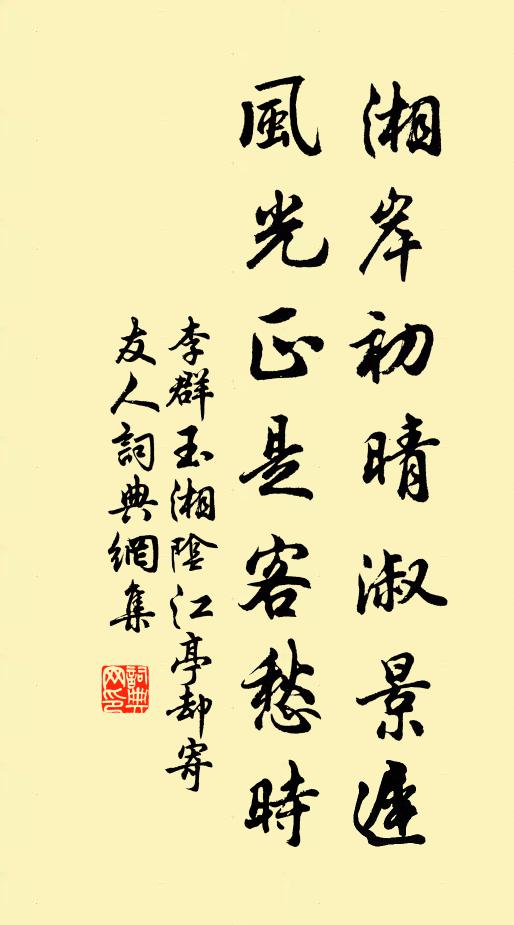 湘岸初晴淑景遲
風光正是客愁時
李群玉湘陰江亭却寄
友人詞典網集
詞典
网印